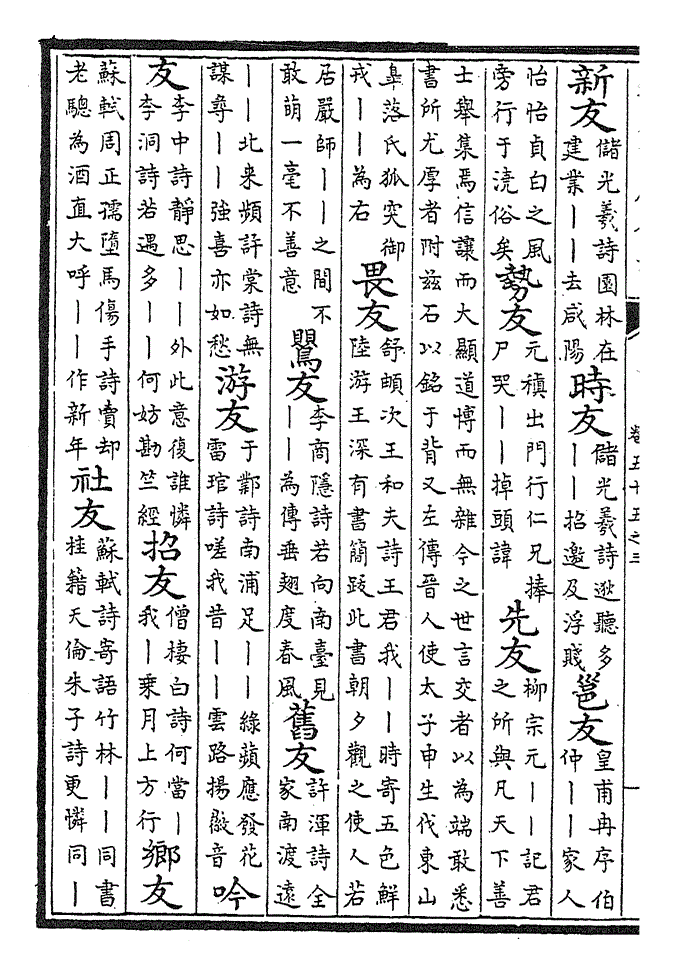 卷五十五之三
一
新友 儲光羲詩園林在建業——去咸陽 時友 儲光羲詩逖聽多——招邀及浮賤 邕友 皇甫冉序伯仲——家人
怡怡貞白之風旁行于澆俗矣 勢友 元稹出門行仁兄捧尸哭——掉頭諱 先友 柳宗元——記君之所與凡天下善
士舉集焉信讓而大顯道博而無雜今之世言交者以為端敢悉書所尤厚者附兹石以銘于背又左傳晉人使太子申生伐東山
臯落氏狐突御戎——為右 畏友 舒頔次王和夫詩王君我——時寄五色鮮陸游王深有書簡跋此書朝夕觀之使人若
居嚴師——之間不敢萌一毫不善意 鸎友 李商隱詩若向南臺見——為傳垂翅度春風 舊友 許渾詩全家南渡遠
——北来頻許棠詩無謀尋——強喜亦如愁 游友 于鄴詩南浦足——綠蘋應發花雷琯詩嗟我昔——雲路揚徽音 吟
友 李中詩靜思——外此意復誰憐李洞詩若遇多——何妨勘竺經 招友 僧棲白詩何當—我—乘月上方行 鄉友
蘇軾周正孺墮馬傷手詩賣却老驄為酒直大呼——作新年 社友 蘇軾詩寄語竹林——同書桂籍天倫朱子詩更憐同—